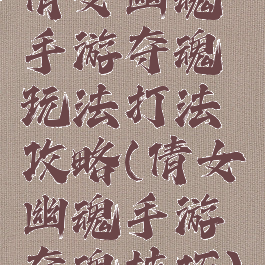 倩女幽魂
手游夺魂
玩法打法
攻略(倩女
幽魂手游
夺魂技巧)